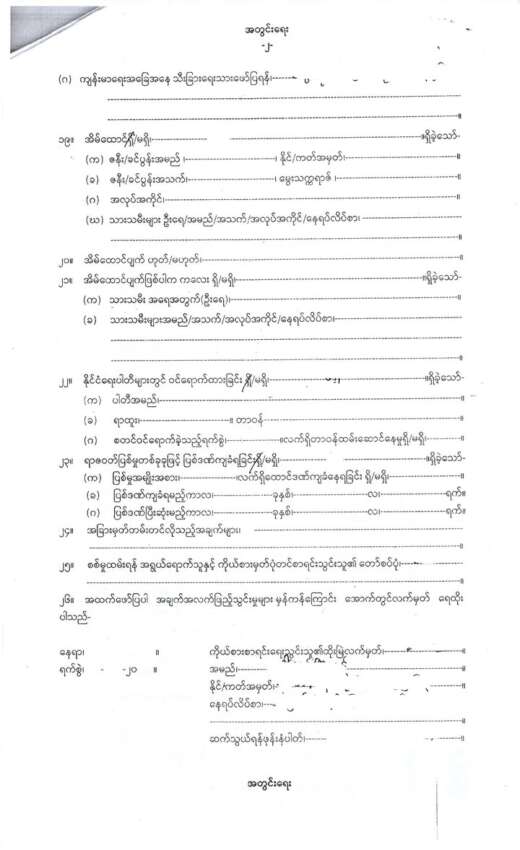 အတွင်းရေး
-၂-
(ဂ) ကျန်းမာရေးအခြေအနေ သီးခြားရေးသားဖော်ပြရန်၊
၁၉။ အိမ်ထောင်ရှိ/မရှိ၊ ။ရှိခဲ့သော်-
(က) ဇနီး/ခင်ပွန်းအမည် ၊ ၊ နိုင်/ကတ်အမှတ်၊ ။
(ခ) ဇနီး/ခင်ပွန်းအသက်၊ ၊ မွေးသက္ကရာဇ် ၊ ။
(ဂ) အလုပ်အကိုင်၊ ။
(ဃ) သားသမီးများ ဦးရေ/အမည်/အသက်/အလုပ်အကိုင်/နေရပ်လိပ်စာ
။
၂၀။ အိမ်ထောင်ပျက် ဟုတ်/မဟုတ်၊ ။
၂၁။ အိမ်ထောင်ပျက်ဖြစ်ပါက ကလေး ရှိ/မရှိ၊ ။ရှိခဲ့သော်-
(က) သားသမီး အရေအတွက်(ဦးရေ)၊ ။
(ခ) သားသမီးများအမည်/အသက်/အလုပ်အကိုင်/နေရပ်လိပ်စာ၊
။
၂၂။ နိုင်ငံရေးပါတီများတွင် ဝင်ရောက်ထားခြင်း ရှိ/မရှိ၊ ။ရှိခဲ့သော်-
(က) ပါတီအမည်၊ ။
(ခ) ရာထူး၊ ။ တာဝန် ။
(ဂ) စတင်ဝင်ရောက်ခဲ့သည့်ရက်စွဲ၊ ။လက်ရှိတာဝန်ထမ်းဆောင်နေမှုရှိ/မရှိ၊ ။
၂၃။ ရာဇဝတ်ပြစ်မှုတစ်ခုခုဖြင့် ပြစ်ဒဏ်ကျခံရခြင်းရှိ/မရှိ၊ ။ရှိခဲ့သော်-
(က) ပြစ်မှုအမျိုးအစား၊ ။လက်ရှိထောင်ဒဏ်ကျခံနေရခြင်း ရှိ/မရှိ၊ ။
(ခ) ပြစ်ဒဏ်ကျခံရမည့်ကာလ၊ ခုနှစ်၊ လ၊ ရက်။
(ဂ) ပြစ်ဒဏ်ပြီးဆုံးမည့်ကာလ၊ ခုနှစ်၊ လ၊ ရက်။
၂၄။ အခြားမှတ်တမ်းတင်လိုသည့်အချက်များ၊
။
၂၅။ စစ်မှုထမ်းရန် အရွယ်ရောက်သူနှင့် ကိုယ်စားမှတ်ပုံတင်စာရင်းသွင်းသူ၏ တော်စပ်ပုံ၊ ။
။
၂၆။ အထက်ဖော်ပြပါ အချက်အလက်ဖြည့်သွင်းမှုများ မှန်ကန်ကြောင်း အောက်တွင်လက်မှတ် ရေးထိုး
ပါသည်-
နေရာ၊ ။ ကိုယ်စားစာရင်းရေးသွင်းသူ၏ထိုးမြဲလက်မှတ်၊ ။
ရက်စွဲ၊ - -၂၀ ။ အမည်၊ ။
နိုင်/ကတ်အမှတ်၊ ။
နေရပ်လိပ်စာ၊
။
ဆက်သွယ်ရန်ဖုန်းနံပါတ်၊ ။
အတွင်းရေး